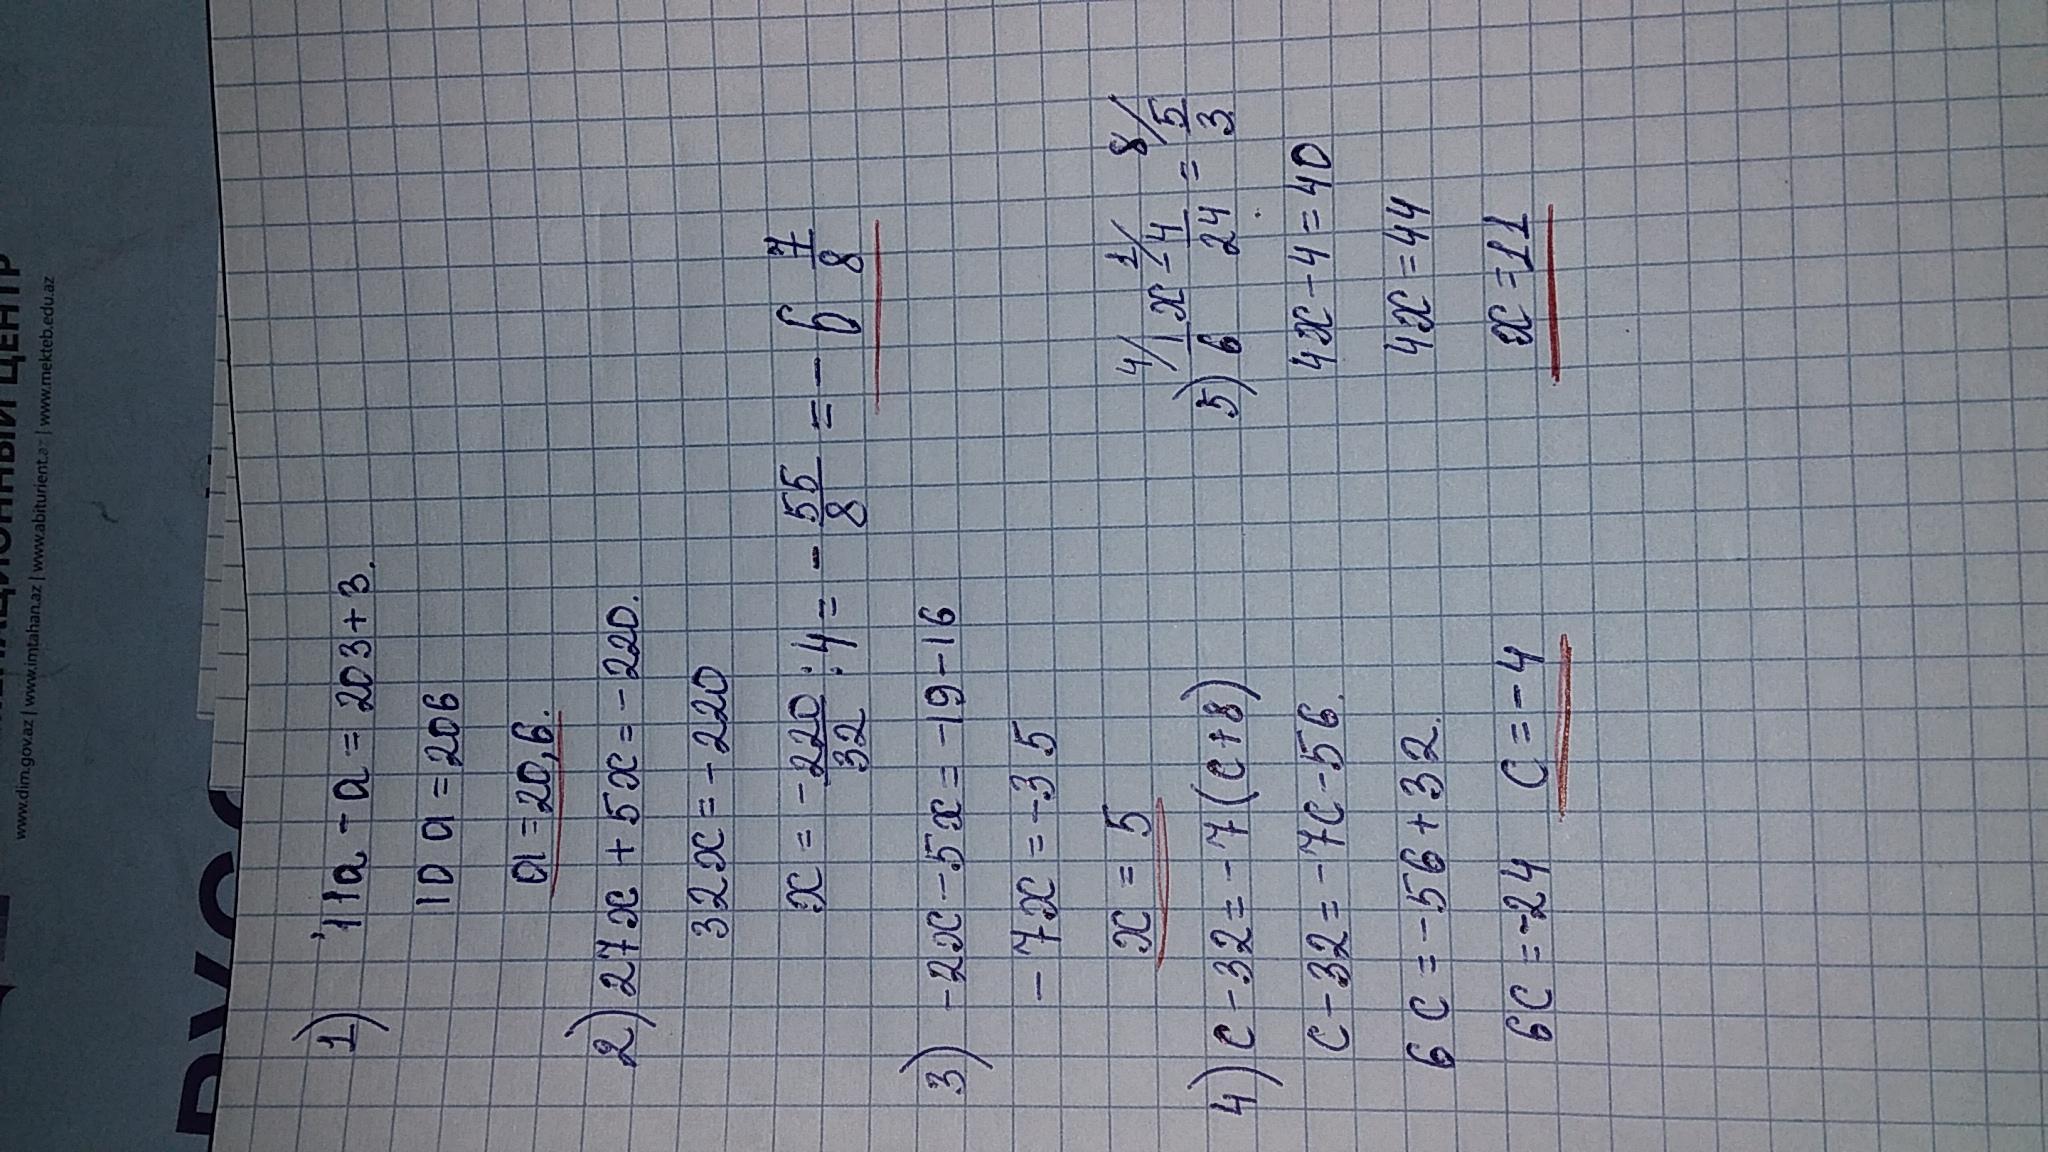 www.dim.gov.az | www.imtahan.az | www.abiturient.az | www.mekteb.edu.az
1) 11a - a = 203 + 3.
10a = 206
a = 20,6.
2) 27x + 5x = -220.
32x = -220
x = -220/32 : 4 = -55/8 = -6 7/8
3) -2x - 5x = -19 - 16
-7x = -35
x = 5
4) c - 32 = -7(c + 8)
c - 32 = -7c - 56.
6c = -56 + 32.
6c = -24 c = -4
4/ 1/ 8/
5) 1/6 x - 4/24 = 5/3
4x - 4 = 40
4x = 44
x = 11